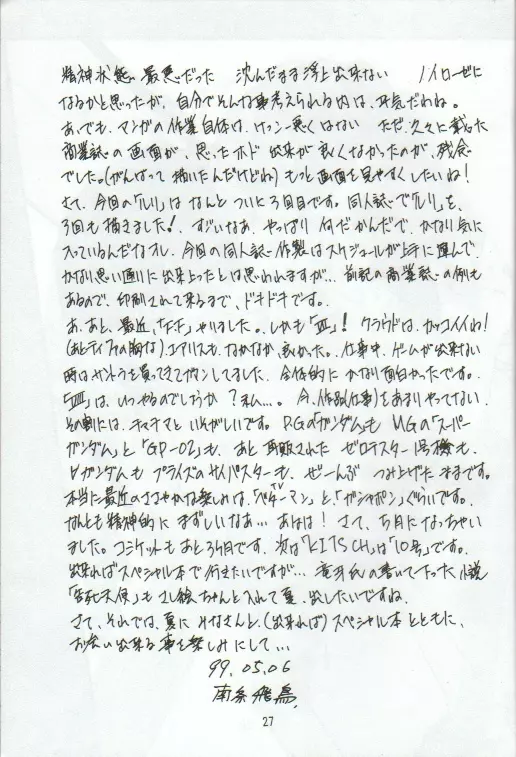 精神状態 最悪だった 沈んだまま浮上出来ない ノイローゼに
なるかと思ったが、自分でそんな事考えられる内は、平気だわね。
あ、でも、マンガの作業自体は、けっこー悪くはない ただ、久々に載った
商業誌の画面が、思ったホド 出来が良くなかったのが、残念
でした。(がんばって 描いたんだけどね) もっと画面を見やすくしたいね!
さて、今回の「ルリ」は なんと ついに3回目です。同人誌で「ルリ」を、
3回も描きました! すごいなあ、やっぱり 何だかんだで、かなり気に
入っているんだなオレ、今回の同人誌 作製はスケジュールが上手に運んで、
かなり思い通りに出来上ったとは思われますが… 前記の商業誌の例も
あるので、印刷されて来るまで、ドキドキです。
あ、あと、最近、「FF」やりました。しかも「Ⅶ」! クラウドは、カッコイイね!
(あとティファの胸な) エアリスも、なかなか、良かった。仕事中、ゲームが出来ない
時はサントラを買ってきてガマンしてました。全体的に かなり面白かったです。
「Ⅷ」は、いつやるのでしょうか?私…。今、作品(仕事)をあまりやってない、
その割には、チャチャマと いそがしいです。P.Gの「ガンダム」も MGの「スーパー
ガンダム」と「GP-02」も、あと 再販された ゼロテスター1号機も、
Vガンダムも プライズのサイバスターも、ぜーんぶ つみ上げたままです。
本当に最近のささやかな楽しみは、TV「ベターマン」と、「ガシャポン」ぐらいです。
なんとも精神的に まずしいなあ… あはは! さて、5月になっちゃい
ました。コミケットもあと3ヶ月です。次は「KITSCH」は「10号」です。
出来ればスペシャル本で行きたいですが… 竜牙氏の書いて下さった小説
「告死天使」も さし絵ちゃんと入れて夏、出したいですね、
さて、それでは、夏に みなさんと、(出来れば) スペシャル本とともに、
お会い出来る事を楽しみにして…
99.05.06
南条飛鳥
27